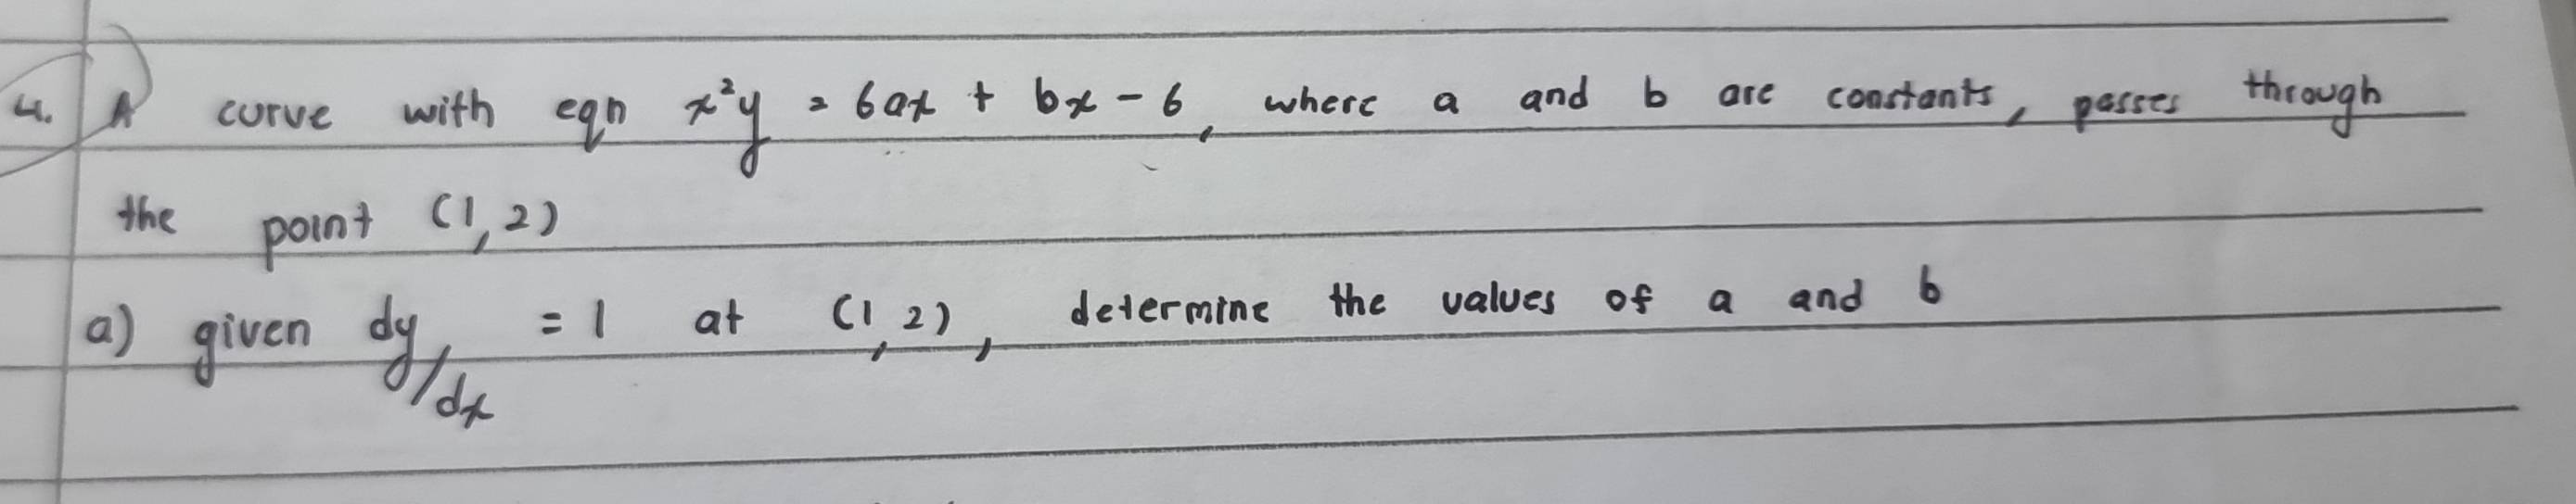 4. A curve with eqn x²y = 6ax + bx - 6, where a and b are constants, passes through
the point (1,2)
a) given dy/dx = 1 at (1,2), determine the values of a and b